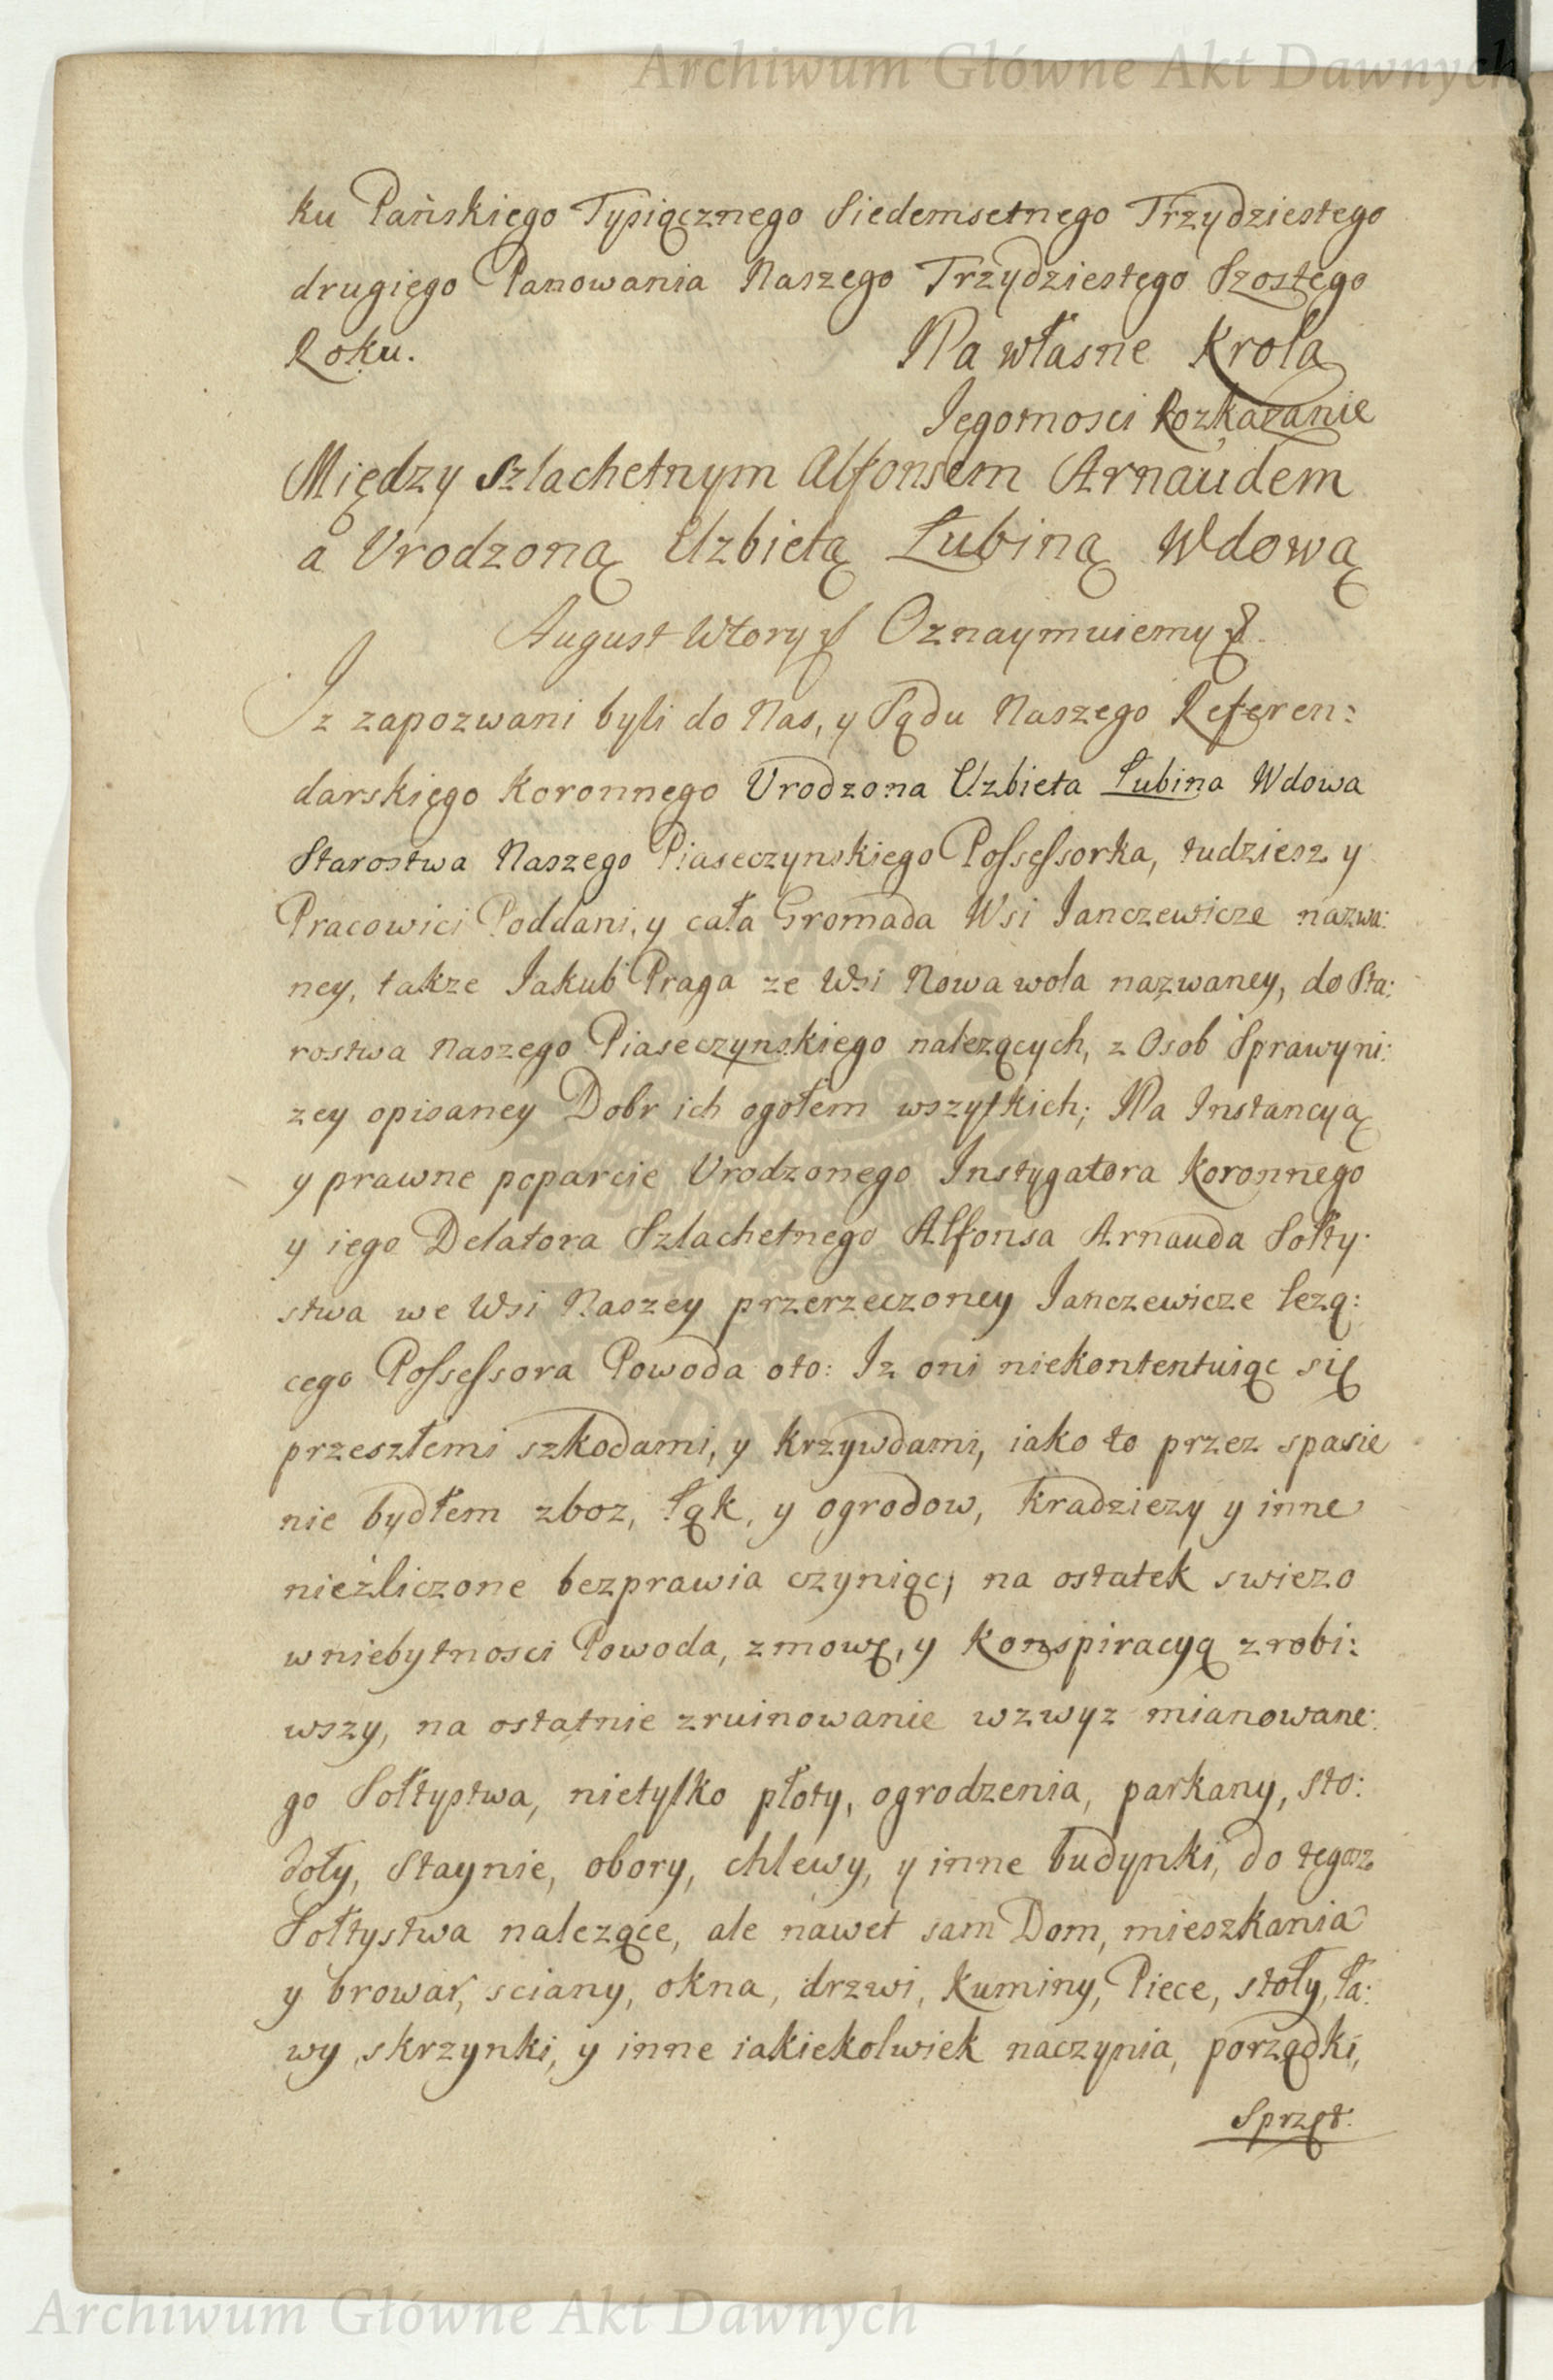 Archiwum Główne Akt Dawnych
ku Pańskiego Tysiącznego Siedemsetnego Trzydziestego
drugiego Panowania Naszego Trzydziestego Szostego
Roku. Na własne Krola
Jegomosci Rozkazanie
Między Szlachetnym Alfonsem Arnaudem
a Urodzoną Elzbietą Łubiną Wdową
August Wtory Oznaymuiemy
Iz zapozwani byli do Nas, y Sądu Naszego Referen:
darskiego Koronnego Urodzona Elzbieta Łubina Wdowa
Starostwa Naszego Piaseczynskiego Possessorka, tudziesz y
Pracowici Poddani, y cała Gromada Wsi Janczewicze nazwa:
ney, takze Jakub Praga ze Wsi Nowa wola nazwaney, do Sta:
rostwa Naszego Piaseczynskiego nalezących, z Osob Sprawy ni:
zey opisaney Dobr ich ogołem wszystkich; Na Instancyą
y prawne poparcie Urodzonego Instygatora Koronnego
y iego Delatora Szlachetnego Alfonsa Arnauda Sołty:
stwa we Wsi Naszey przerzeczoney Janczewicze lezą:
cego Possessora Powoda oto: Iz oni niekontentuiąc się
przeszłemi szkodami, y krzywdami, iako to przez spasie
nie bydłem zboz, łąk, y ogrodow, kradziezy y inne
niezliczone bezprawia czyniąc, na ostatek swiezo
w niebytnosci Powoda, zmowę, y konspiracyą zrobi:
wszy, na ostatnie zruinowanie wzwyz mianowane:
go Sołtystwa, nietylko płoty, ogrodzenia, parkany, sto:
doły, Staynie, obory, chlewy, y inne budynki, do tegosz
Sołtystwa nalezące, ale nawet sam Dom, mieszkania
y browar, sciany, okna, drzwi, kuminy, Piece, stoły, ła:
wy, skrzynki, y inne iakiekolwiek naczynia, porządki,
Sprzęt:
Archiwum Główne Akt Dawnych